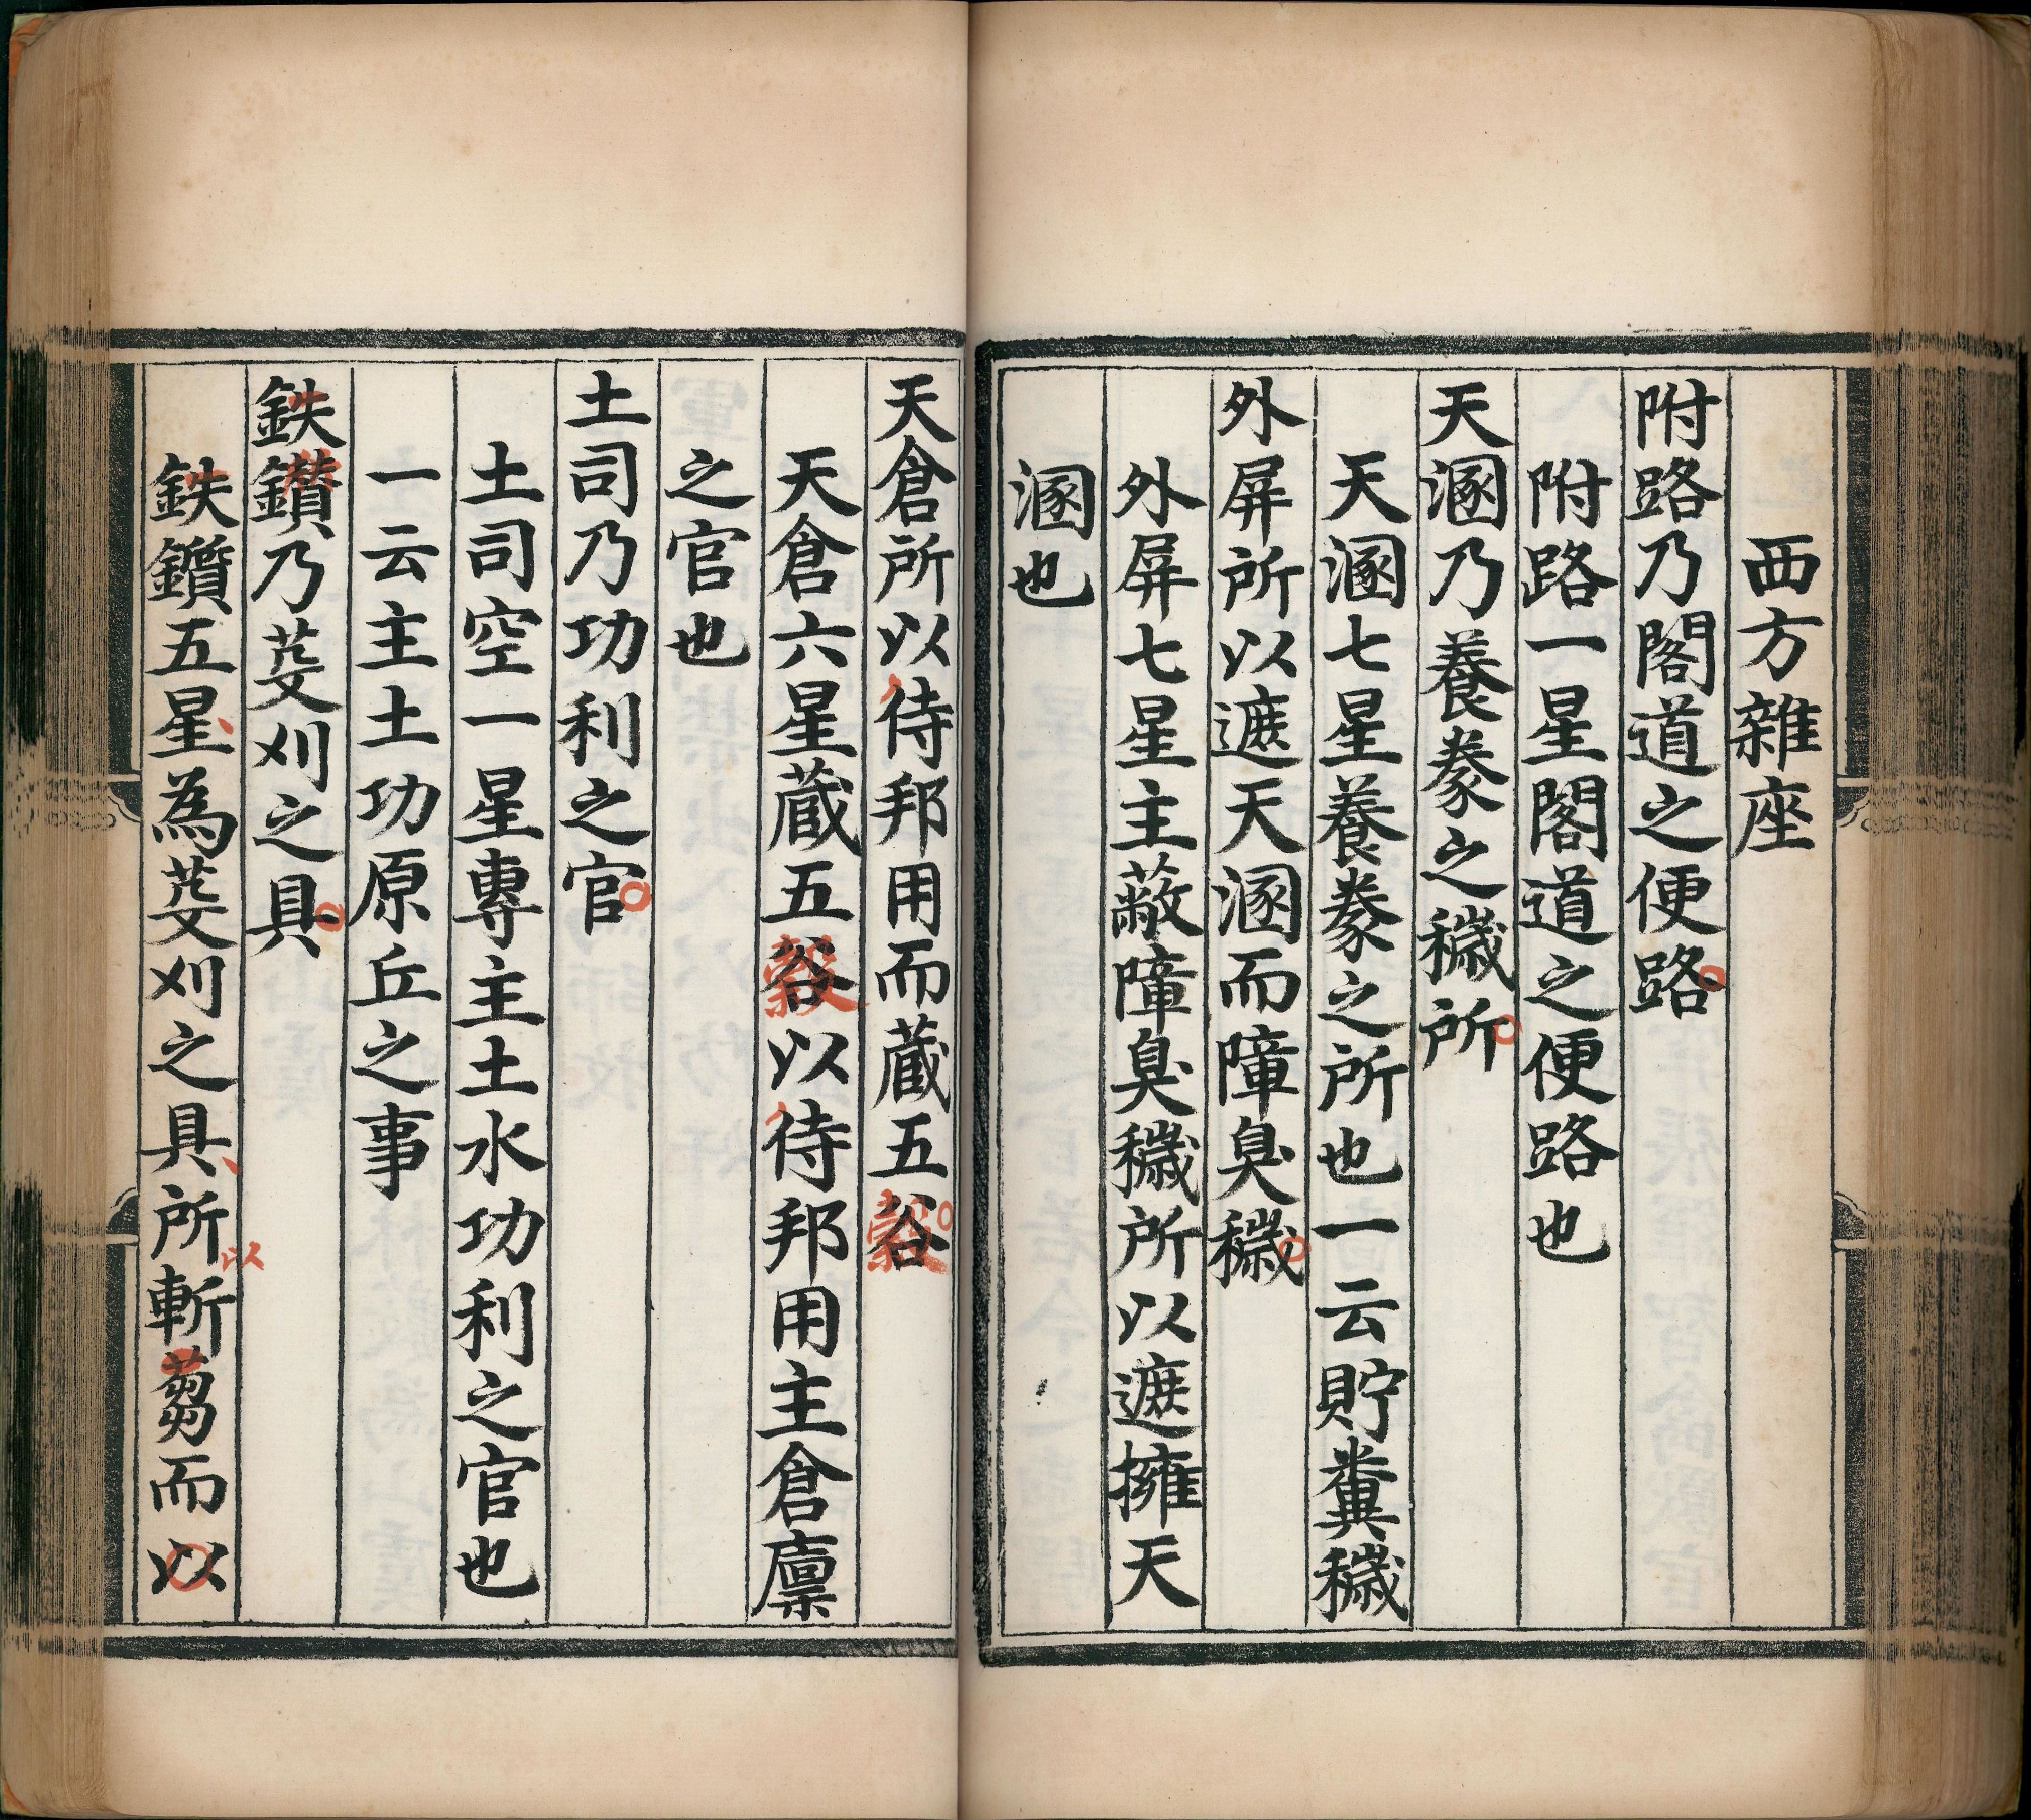 西方雜座
附路乃閣道之便路
附路一星閣道之便路也
天溷乃養豢之穢所
天溷七星養豢之所也一云貯糞穢
外屏所以遮天溷而障臭穢
外屏七星主蔽障臭穢所以遮擁天
溷也
天倉所以待邦用而蔵五穀
天倉六星蔵五穀以待邦用主倉廪
之官也
土司乃功利之官
土司空一星專主土水功利之官也
一云主土功原丘之事
鈇鑕乃芟刈之具
鈇鑕五星為芟刈之具所以斬芻而以